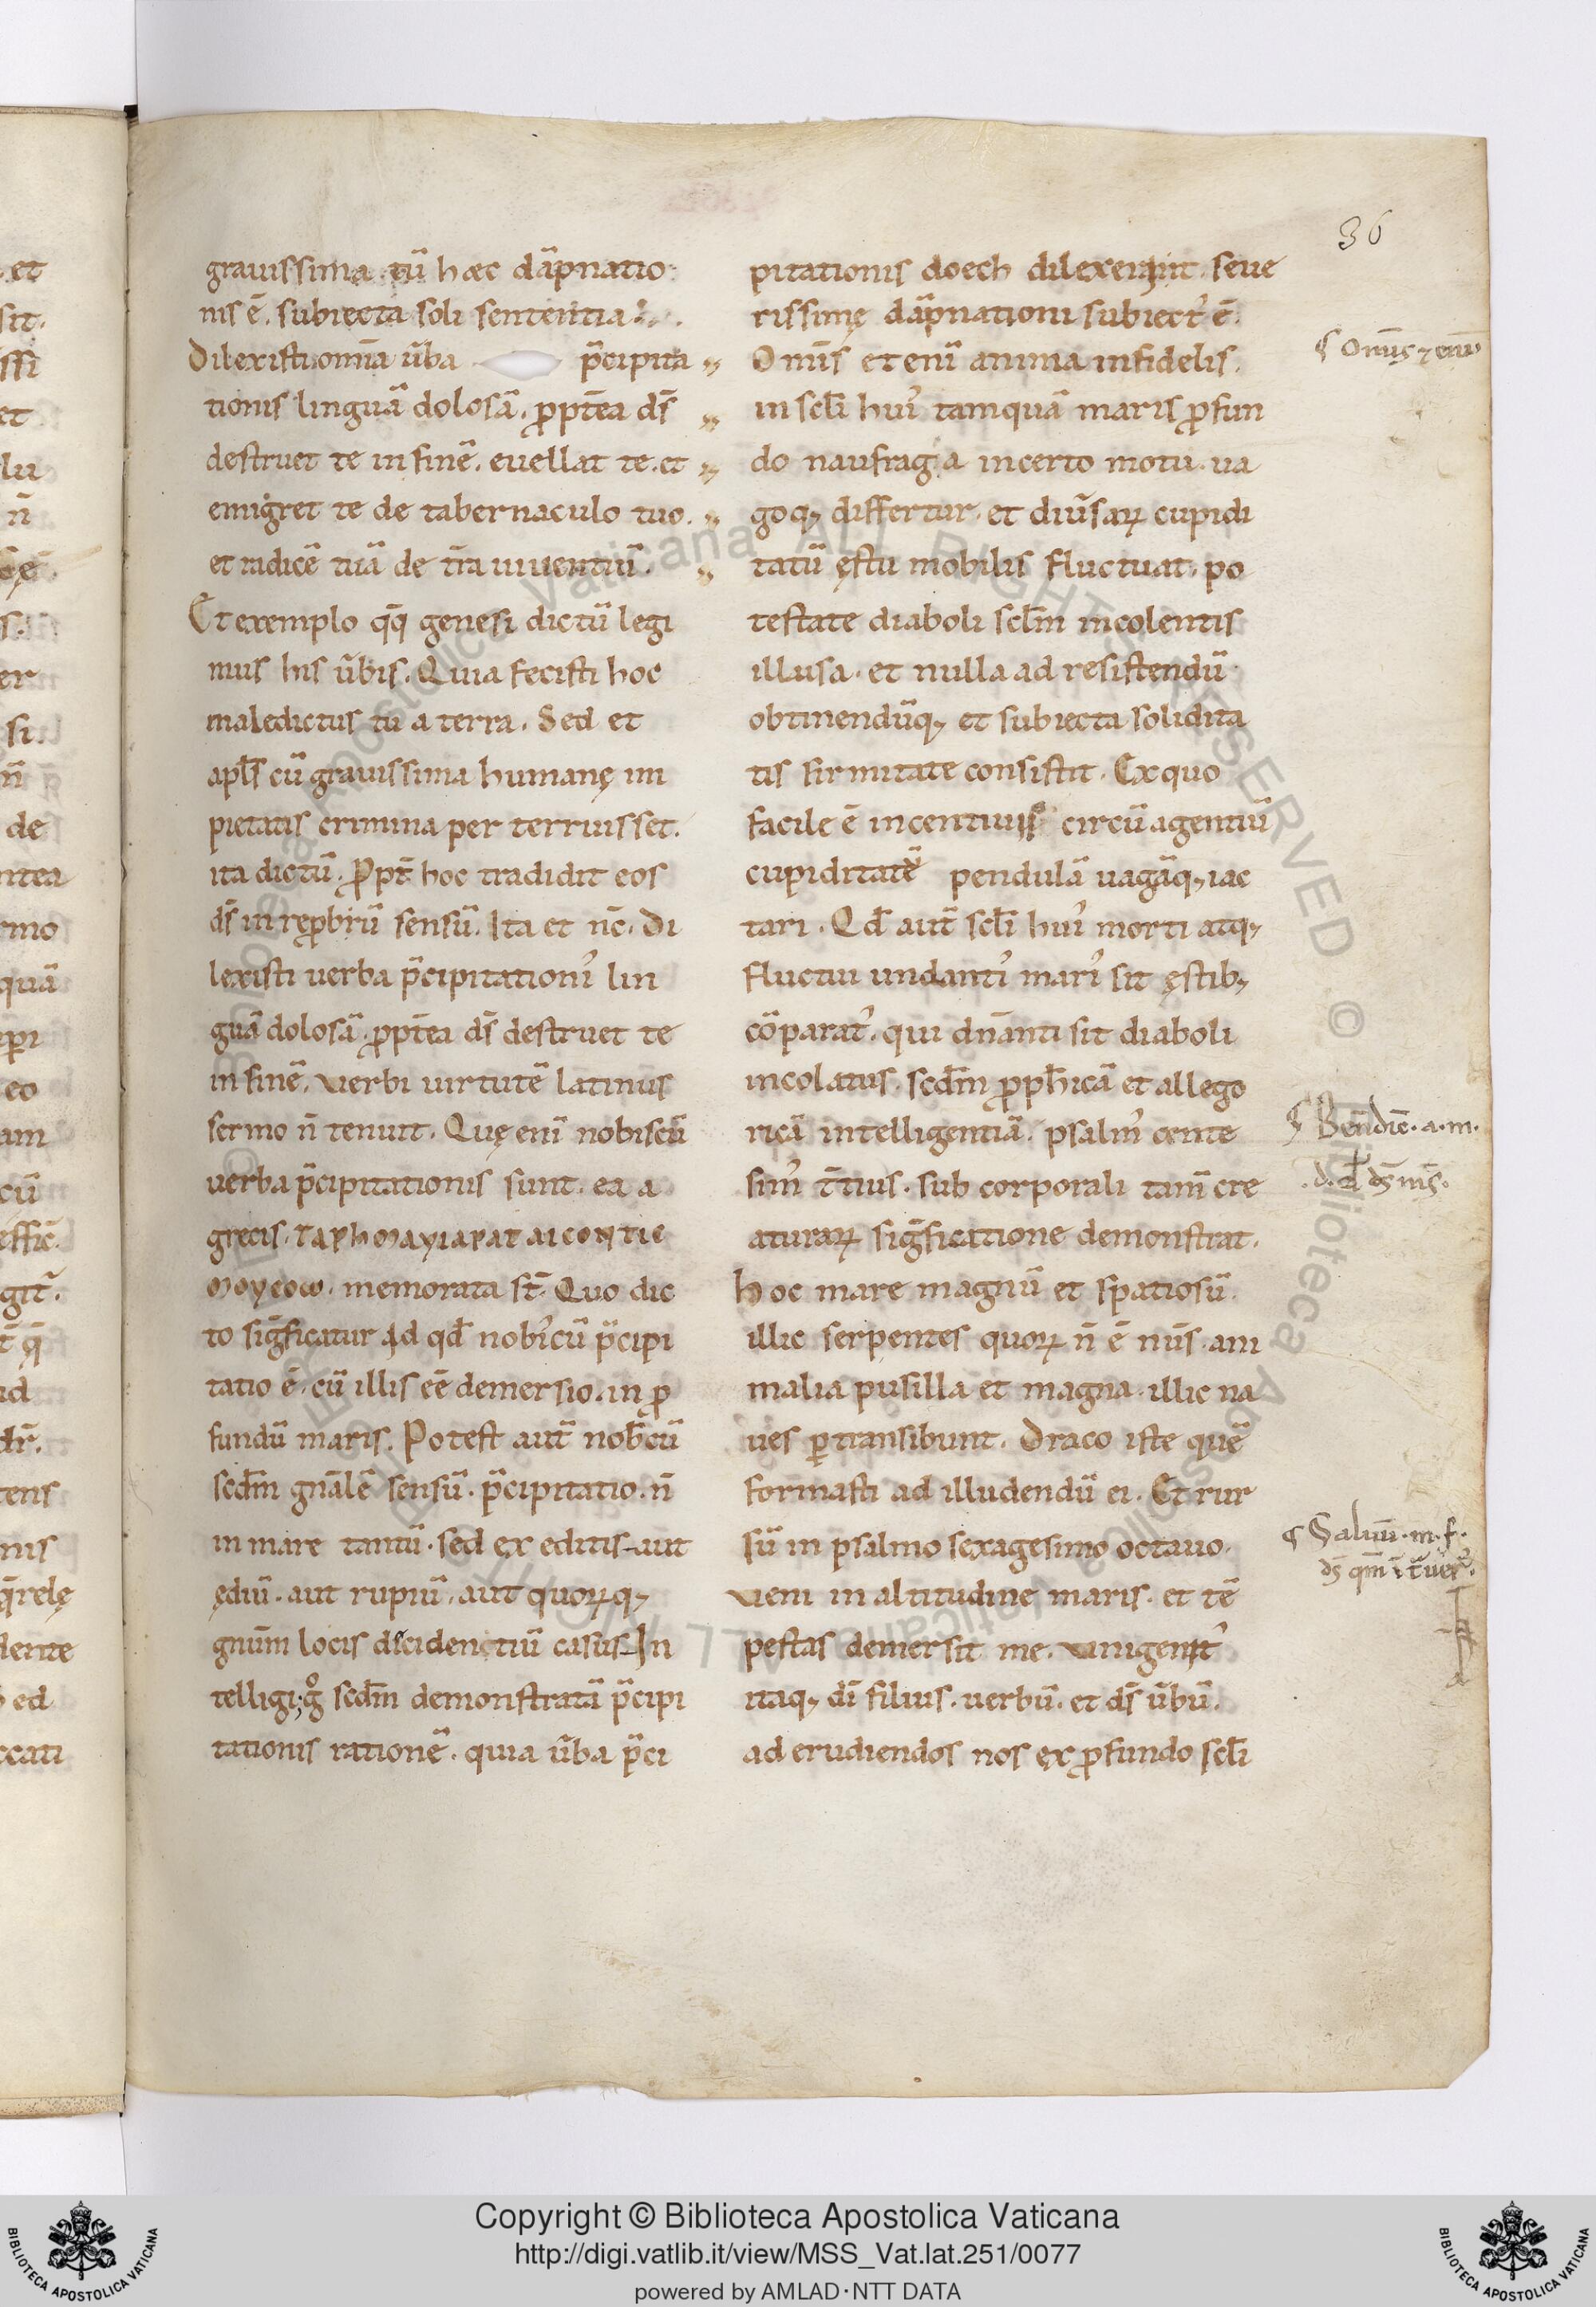 36
grauissima. tū hęc dāpnatio
nis ē. subiecta soli sententia.
Dilexisti om̄ia ūba p̄cipita
tionis linguā dolosā. ꝓpt̄ea d̄s
destruet te in finē. euellat te. et
emigret te de tabernaculo tuo.
et radicē tuā de t̄ra uiuentiū.
Et exemplo qq̄ genesi dictū legi
mus his ūbis. Quia fecisti hoc
maledictus tu a terra. Sed et
apl̄s cū grauissima humanę im
pietatis crimina per terruisset.
ita dictū. Ꝓpt̄ hoc tradidit eos
d̄s in reꝓbrū sensū. Ita et n̄c. Di
lexisti uerba p̄cipitationi᾽ lin
guā dolosā. ꝓpt̄ea d̄s destruet te
in finē. Verbi uirtutē latinus
sermo n̄ tenuit. Quę enī nobiscū
uerba p̄cipitationis sunt. ea a
grecis.
memorata st̄. Quo dic
to siḡficatur id qd̄ nobi᾽cū p̄cipi
tatio ē. cū illis eē demersio. in ꝓ
fundū maris. Potest aut̄ nob̄cū
scdm̄ gn̄alē sensū. p̄cipitatio. n̄
in mare tantū. sed ex editis aut
ędiū. aut rupiū. aut quoꝝq;
gnūm locis decidentiū casus In
telligi; gͦ scdm̄ demonstratā p̄cipi
tationis rationē. quia ūba p̄ci
pitationis doech dilexerint. seue
rissimę dāpnationi subiect᾽ ē.
Om̄is et enī anima infidelis.
in scl̄i hui᾽ tamquā maris ꝓfun
do naufraga incerto motu. ua
goq; differtur. et diūsaꝝ cupidi
tatū ęstu mobilis fluctuat. po
testate diaboli scl̄m incolentis
illusa. et nulla ad resistendū
obtinendūq; et subiecta solidita
tis firmitate consistit. Ex quo
facile ē incentiuis circū agentiū
cupiditatē pendulā uagāq; iac
tari. Qd̄ aut̄ scl̄i hui᾽ morti atq;
fluctui undanti᾽ mari᾽ sit ęstib;
cōparat᾽. qui dn̄anti sit diaboli
incolatus. scdm̄ ꝓph̄icā et allego
ricā intelligentiā. psalm᾽ cente
sim᾽ t̄tius. sub corporali tam̄ cre
aturaꝝ siḡficatione demonstrat.
Hoc mare magnū et spatiosū.
illic serpentes quoꝝ n̄ ē nūs. ani
malia pusilla et magna. illic na
ues ꝑtransibunt. Draco iste quē
formasti ad illudendū ei. Et rur
sū in psalmo sexagesimo octauo.
Veni in altitudine maris. et tē
pestas demersit me. Vnigenit᾽
itaq; dī filius. uerbū. et d̄s ūbū.
ad erudiendos nos ex ꝓfundo scl̄i
¶ Om̄is ⁊ enī
¶ Ben̄dic̄. a. m.
. d. d̄ d̄s m̄s.
¶ Saluū. m. f.
d̄s qm̄
Copyright © Biblioteca Apostolica Vaticana
http://digi.vatlib.it/view/MSS_Vat.lat.251/0077
powered by AMLAD·NTT DATA
BIBLIOTECA APOSTOLICA VATICANA
BIBLIOTECA APOSTOLICA VATICANA